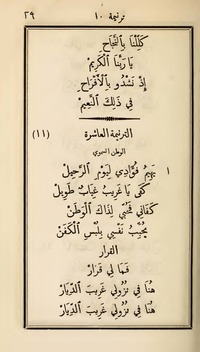 ترنيمة ١٠
٢٩
كَلِّلْنَا بِالنَّجَاحِ
يَا رَبَّنَا ٱلْكَرِيمْ
إِذْ نَشْدُو بِٱلْأَفْرَاحِ
فِي ذَلِكَ ٱلنَّعِيمْ
الترنيمة العاشرة
(١١)
الوطن السموي
١ يَهِيمُ فُؤَادِي لِيَوْمِ ٱلرَّحِيلْ
كَفَى يَا غَرِيبُ غِيَابٌ طَوِيلْ
كَفَانِي فَحُبِّي لِذَاكَ ٱلْوَطَنْ
يُجِيبُ نَفْسِي بِلُبْسِ ٱلْكَفَنْ
القرار
فَمَا لِي قَرَارْ
هُنَا فِي نُزُولِي غَرِيبَ ٱلدِّيَارْ
هُنَا فِي نُزُولِي غَرِيبَ ٱلدِّيَارْ